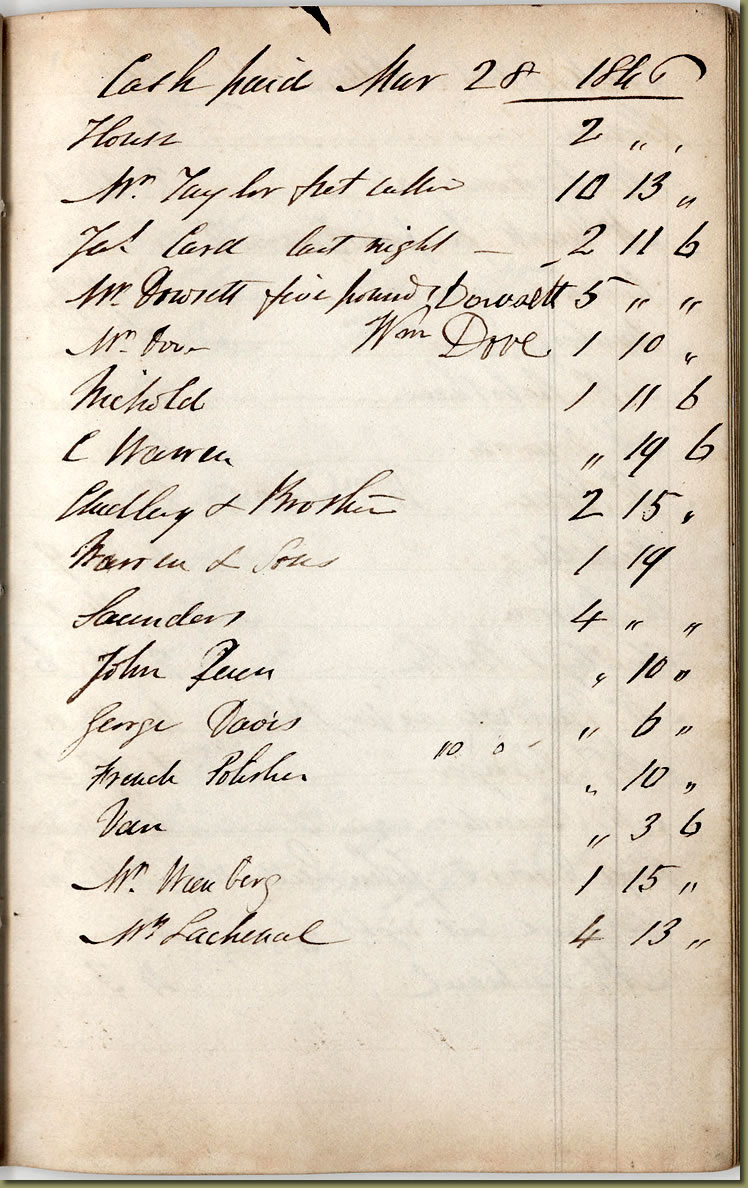 Cash paid Mar 28 1846
House 2 " "
Mr Taylor fret cutter 10 13 "
Jas Card last night – 2 11 6
Mr Dowsett five pounds Dowsett 5 " "
Mr Dove Wm Dove 1 10 "
Nichold 1 11 6
C Warren " 19 6
Chidley & Brother 2 15 "
Warren & Sons 1 19
Saunders 4 " "
John " 10 "
George Davis " 6 "
10 0 -
French Polisher " 10 "
Van " 3 6
Mr 1 15 "
Mr Lachenal 4 13 "